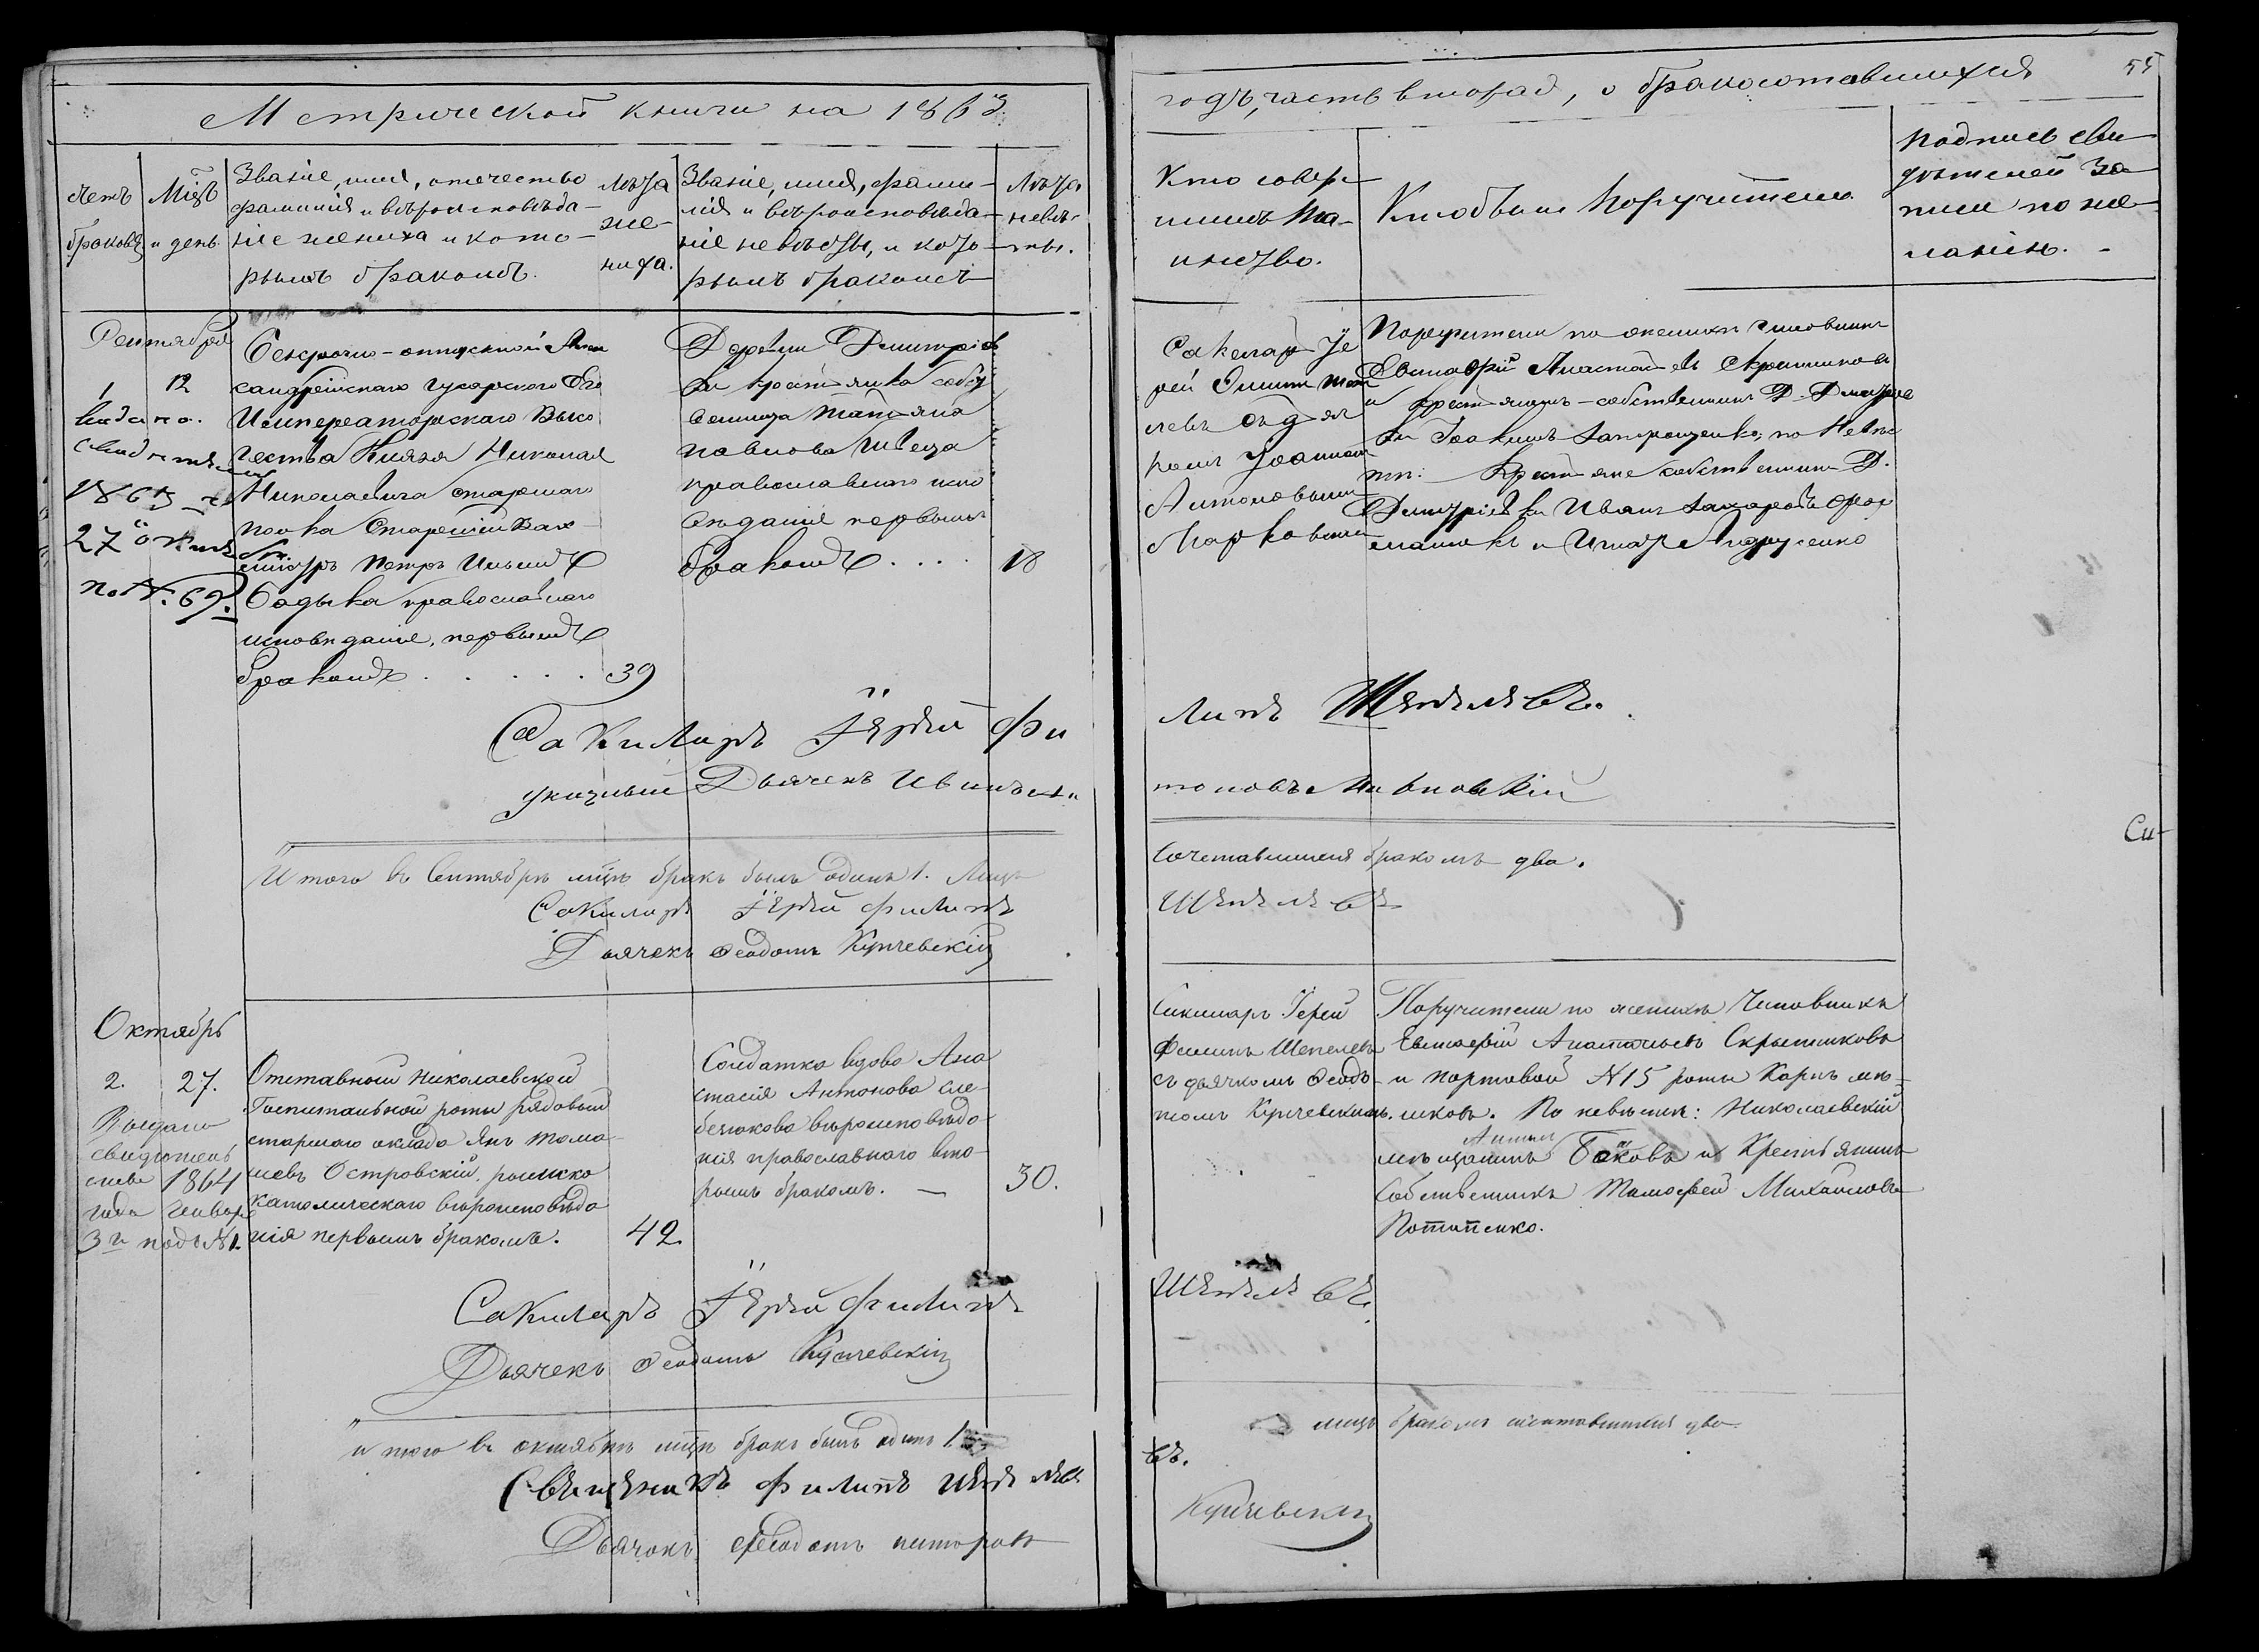 Метрической книги на 1863
годъ, часть вторая, о бракосочетавшихся
Счетъ
браковъ
Мѣсъ
и день
Званіе, имя, отчество
фамилія и вѣроисповѣда-
ніе жениха и кото-
рымъ бракомъ
Лѣта
же-
ниха.
Званіе, имя, фами-
лія и вѣроисповѣда-
ніе невѣсты, и кото-
рымъ бракомъ
Лѣта
невѣс-
ты.
Кто совер-
шилъ та-
инство.
Кто были поручители
Подпись сви-
дѣтелей за-
писи по же-
ланію.
Сентября
1 12
видано.
свидѣтель
1865
27 октя
по №. 69.
Безсрочно-отпускной Алек
сандрійскаго гусарскаго Его
Императорскаго Высо
чества Князя Николая
Николаевича старшаго
полка Старшій Вах
мистръ Петръ Ильинъ
Бадыка православнаго
исповѣданіе, первымъ
бракомъ . . . . . 39
Деревни Дмитріев
ки крестьянка собст
венница Татьяна
Павлова Швеца
православнаго испо
вѣданіе первымъ
бракомъ . . . . 18
Сакелар Іе
рей Филип Шепе
левъ съ дья
комъ Іоанном
Антоновымъ
Марковским
Поручители по женихѣ чиновникъ
Евстафій Анастасьев Скрытников
и крестьянинъ-собственникъ Д. Дмитріев
ки Іоакимъ Запорощенко; по Невѣс
тѣ: Крестьяне собственники Д.
Дмитріевки Иванъ Захаровъ
и Игнатъ Андрусенко
Сакиларъ Іерей Филипъ Шепелевъ.
указный Дьячекъ Иванъ Антоновъ Марковскій
Итого въ Сентябрѣ мцѣ бракъ былъ одинъ 1. Лицъ
Сочетавшихся бракомъ два.
Сакиларъ Іерей Филипъ Шепелевъ
Дьячекъ Феодотъ Купчевскій
Октябрь
2. 27.
Выдано
свидѣтель
ство 1864
года Генвар
3 г подъ №1.
Отставной Николаевской
Госпитальной роты рядовый
старшаго оклада Янъ Тома-
шевъ Островскій, римско
католическаго вѣроисповѣда
нія первымъ бракомъ. 42.
Солдатка вдова Ана
стасія Антонова Сле-
безюкова вѣроисповѣда-
нія православнаго вто-
рымъ бракомъ. — 30.
Сакиларъ Іерей
Филипъ Шепелевъ
съ дьячкомъ Феодо-
томъ Купчевскимъ.
Поручители по женихѣ Чиновникъ
Евстафій Анастасьевъ Скрытниковъ
и портовой №15 роты Карпъ Мѣ-
шковъ. По невѣстѣ: Николаевскій
мѣщанинъ Антон Баковъ и Крестьянинъ
Собственникъ Тимофей Михайловъ
Потапенко.
Сакиларъ Іерей Филипъ Шепелевъ.
Дьячекъ Феодотъ Купчевскій
итого въ октябрѣ мцѣ бракъ былъ одинъ 1
лицъ бракомъ сочетавшихся два
Священикъ Филипъ Шепелевъ.
Дьячокъ Феодотъ Купчевскій